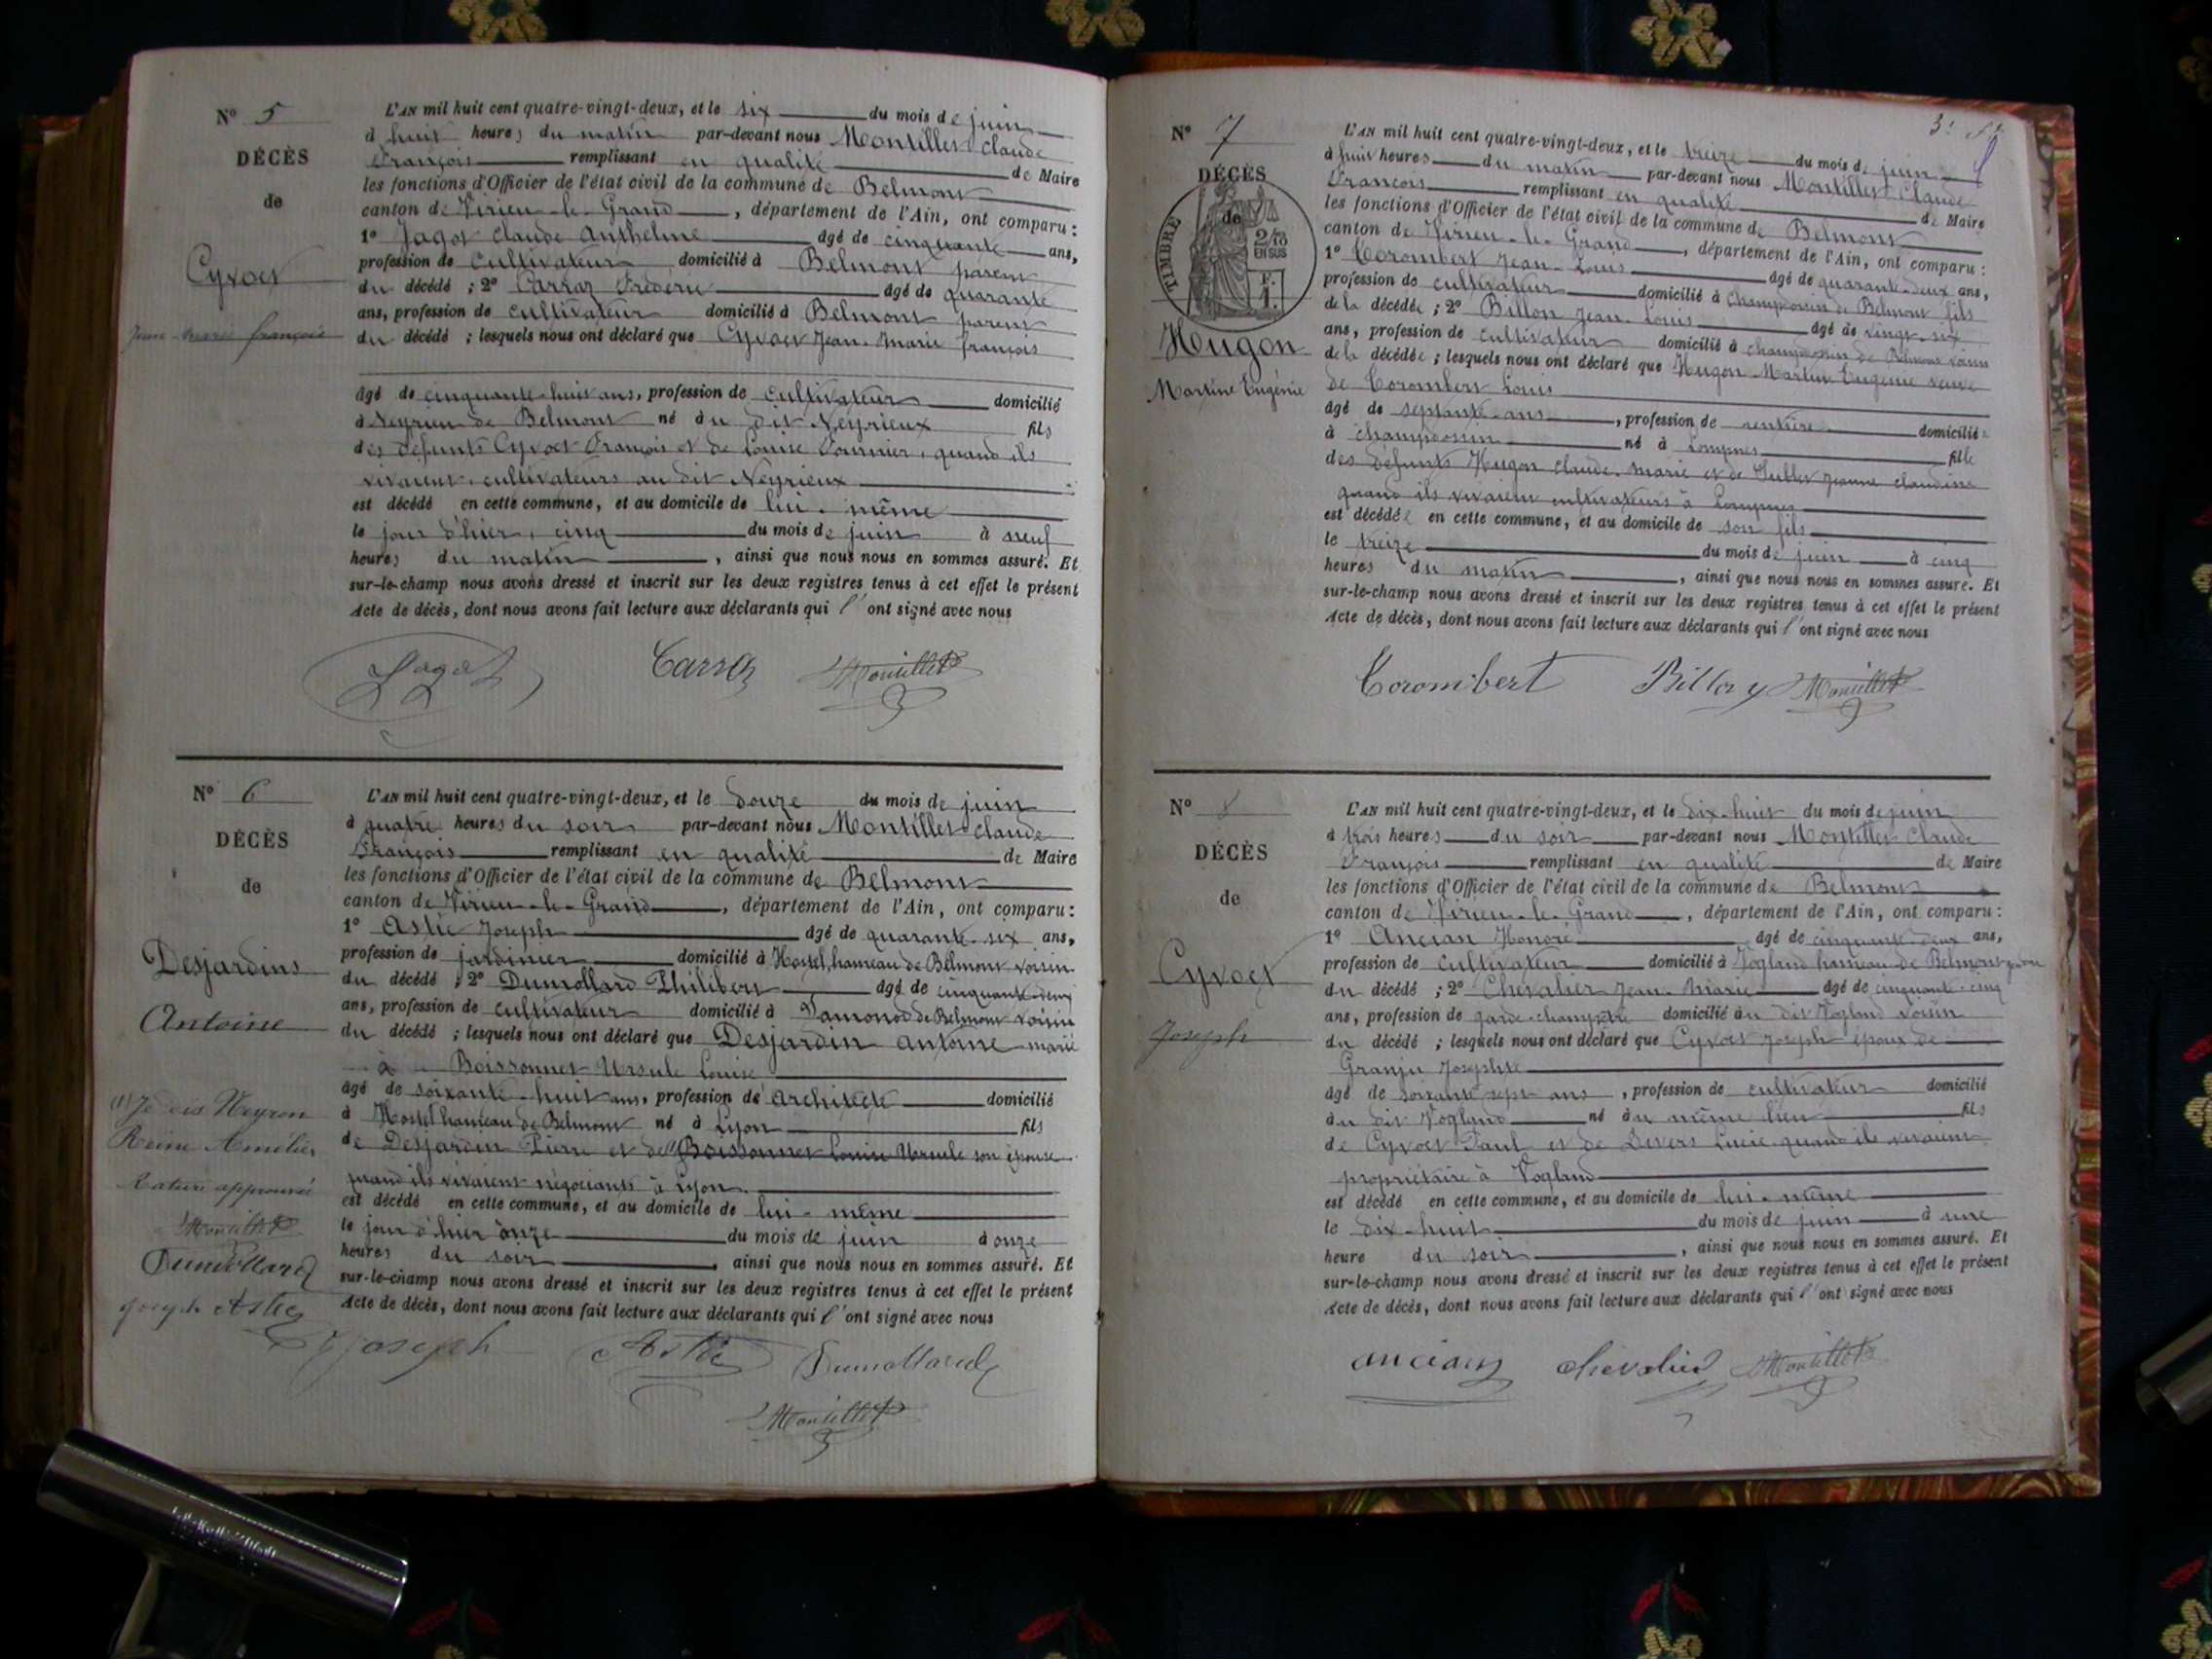 N° 5
DÉCÈS
de
Cyvoct
Jean-Marie françois
L'AN mil huit cent quatre-vingt-deux, et le six du mois de juin
à huit heures du matin par-devant nous Montillet Claude
François remplissant en qualité de Maire
les fonctions d'Officier de l'état civil de la commune de Belmont
canton de Virieu-le-Grand, département de l'Ain, ont comparu :
1° Jagot Claude Anthelme âgé de cinquante ans,
profession de cultivateur domicilié à Belmont parent
du décédé ; 2° Carraz Frédéric âgé de quarante
ans, profession de cultivateur domicilié à Belmont parent
du décédé ; lesquels nous ont déclaré que Cyvoct Jean-Marie françois
âgé de cinquante-huit ans, profession de cultivateur domicilié
à Neyrieu de Belmont né à u dit Neyrieux fils
des défunts Cyvoct François et de Louise Fournier, quand ils
vivaient, cultivateurs au dit Neyrieux
est décédé en cette commune, et au domicile de lui-même
le jour d'hier, cinq du mois de juin à neuf
heures du matin, ainsi que nous nous en sommes assuré. Et
sur-le-champ nous avons dressé et inscrit sur les deux registres tenus à cet effet le présent
Acte de décès, dont nous avons fait lecture aux déclarants qui l'ont signé avec nous
Jagot Carraz Montillet
N° 6
DÉCÈS
de
Desjardins
Antoine
(1) Je dis Neyron
Reine Amélie
Rature approuvée
Montillet
Dumollard
Joseph Astic
L'AN mil huit cent quatre-vingt-deux, et le douze du mois de juin
à quatre heures du soir par-devant nous Montillet Claude
François remplissant en qualité de Maire
les fonctions d'Officier de l'état civil de la commune de Belmont
canton de Virieu-le-Grand, département de l'Ain, ont comparu :
1° Astic Joseph âgé de quarante-six ans,
profession de jardinier domicilié à Hostel, hameau de Belmont voisin
du décédé ; 2° Dumollard Philibert âgé de cinquante-deux
ans, profession de cultivateur domicilié à Vamonod de Belmont voisin
du décédé ; lesquels nous ont déclaré que Desjardin Antoine marié
à Boissonnet Ursule Louise
âgé de soixante-huit ans, profession de architecte domicilié
à Hostel hameau de Belmont né à Lyon fils
de Desjardin Pierre et de (1) Boissonnet Louise Ursule son épouse
quand ils vivaient négociants à Lyon.
est décédé en cette commune, et au domicile de lui-même
le jour d'hier onze du mois de juin à onze
heures du soir, ainsi que nous nous en sommes assuré. Et
sur-le-champ nous avons dressé et inscrit sur les deux registres tenus à cet effet le présent
Acte de décès, dont nous avons fait lecture aux déclarants qui l'ont signé avec nous
Joseph Astic Dumollard
Montillet
N° 7
DÉCÈS
de
TIMBRE
2/10
EN SUS
F.
1.
Hugon
Martine Eugénie
L'AN mil huit cent quatre-vingt-deux, et le treize du mois de juin
à huit heures du matin par-devant nous Montillet Claude
François remplissant en qualité de Maire
les fonctions d'Officier de l'état civil de la commune de Belmont
canton de Virieu-le-Grand, département de l'Ain, ont comparu :
1° Corombert Jean-Louis âgé de quarante-deux ans,
profession de cultivateur domicilié à Champdossin de Belmont fils
de la décédée ; 2° Billon Jean-Louis âgé de vingt-six
ans, profession de cultivateur domicilié à champdossin de Belmont voisin
de la décédée ; lesquels nous ont déclaré que Hugon Martine Eugénie veuve
de Corombert Louis
âgé de septante ans, profession de rentière domicilié
à champdossin né à Lompnes fille
des défunts Hugon Claude-Marie et de Jeanne Claudine
quand ils vivaient cultivateurs à Lompnes
est décédée en cette commune, et au domicile de son fils
le treize du mois de juin à cinq
heures du matin, ainsi que nous nous en sommes assuré. Et
sur-le-champ nous avons dressé et inscrit sur les deux registres tenus à cet effet le présent
Acte de décès, dont nous avons fait lecture aux déclarants qui l'ont signé avec nous
Corombert Billon Montillet
N° 8
DÉCÈS
de
Cyvoct
Joseph
L'AN mil huit cent quatre-vingt-deux, et le dix-huit du mois de juin
à trois heures du soir par-devant nous Montillet Claude
François remplissant en qualité de Maire
les fonctions d'Officier de l'état civil de la commune de Belmont
canton de Virieu-le-Grand, département de l'Ain, ont comparu :
1° Ancian Honoré âgé de cinquante-deux ans,
profession de cultivateur domicilié à Vogland hameau de Belmont gendre
du décédé ; 2° Chevalier Jean-Marie âgé de cinquante-cinq
ans, profession de garde-champêtre domicilié à u dit Vogland voisin
du décédé ; lesquels nous ont déclaré que Cyvoct Joseph époux de
Granju Josephte
âgé de soixante sept ans, profession de cultivateur domicilié
à u dit Vogland né à u même lieu fils
de Cyvoct Paul et de Devers Lucie quand ils vivaient
propriétaire à Vogland
est décédé en cette commune, et au domicile de lui-même
le dix-huit du mois de juin à une
heure du soir, ainsi que nous nous en sommes assuré. Et
sur-le-champ nous avons dressé et inscrit sur les deux registres tenus à cet effet le présent
Acte de décès, dont nous avons fait lecture aux déclarants qui l'ont signé avec nous
ancian chevalier Montillet